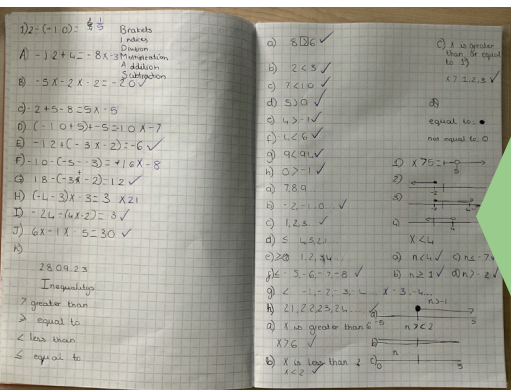 1) 2-(-10)=
Brakets
Indices
Division
Multiplication
Addition
Subtraction
A) -12+4=-8x-3
B) -5x-2x-2=-20✓
C)-2+5-8=5x-5
D) (-10+5)÷-5=10x-7
E) -12+(-3x-2)=-6✓
F)-10-(-5--3)=+16x-8
G) 18-(-3x-2)=12✓
H)(-4-3)x-3=3 x21
I) -24-(4x-2)=3✓
J) 6x-1x-5=30✓
K)
28.09.23
Inequalitys
> greater than
≥ equal to
< less than
≤ equal to
a) 8>6✓
b) 2<3✓
c) 7<10✓
d) 5>0✓
e) 4>-1✓
f) 1<6✓
g) 9<91✓
h) 0>-1✓
a) 7,8,9...
b) -2,-1,0...✓
c) 1,2,3...✓
d) ≤ 4,5,21
f)≤-5,-6,-7,-8✓
h) 21,22,23,24...
a) x is greater than 6
x>6✓
b) x is less than 2
x<2✓
c) x is greater
than, or equal
to 1)
x>1,2,3✓
d)
equal to: ●
not equal to: O
1) x>5=
5
2)
3)
4)
x<4
a) n<4✓
c) n≤-7
b) n≥1✓
d) n>-2✓
n>-1
a)
-5
5
n><2
b)
n
c)
0
5